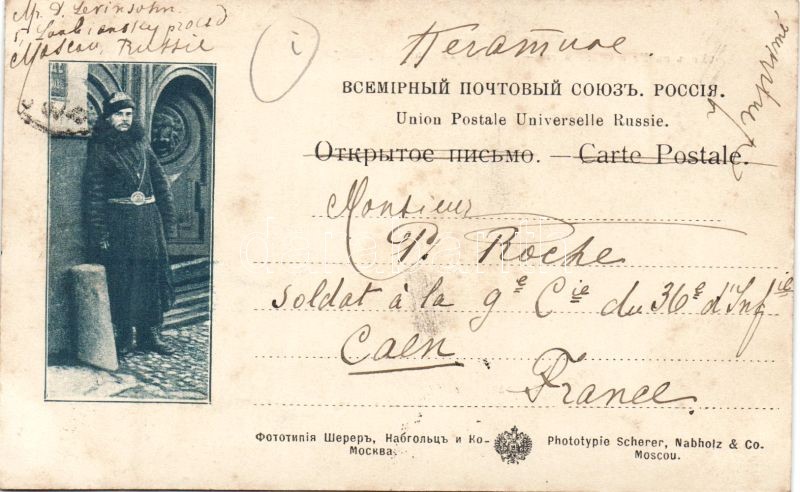 Mr. D. Levinsohn.
Moscou, Russie
Печатное.
Imprimé
ВСЕМІРНЫЙ ПОЧТОВЫЙ СОЮЗЪ. РОССІЯ.
Union Postale Universelle Russie.
Открытое письмо. — Carte Postale.
Monsieur
P. Roche
soldat à la 9e Cie du 36e d'Infie
Caen
France
Фототипія Шереръ, Набгольцъ и Ко-
Москва.
Phototypie Scherer, Nabholz & Co.
Moscou.